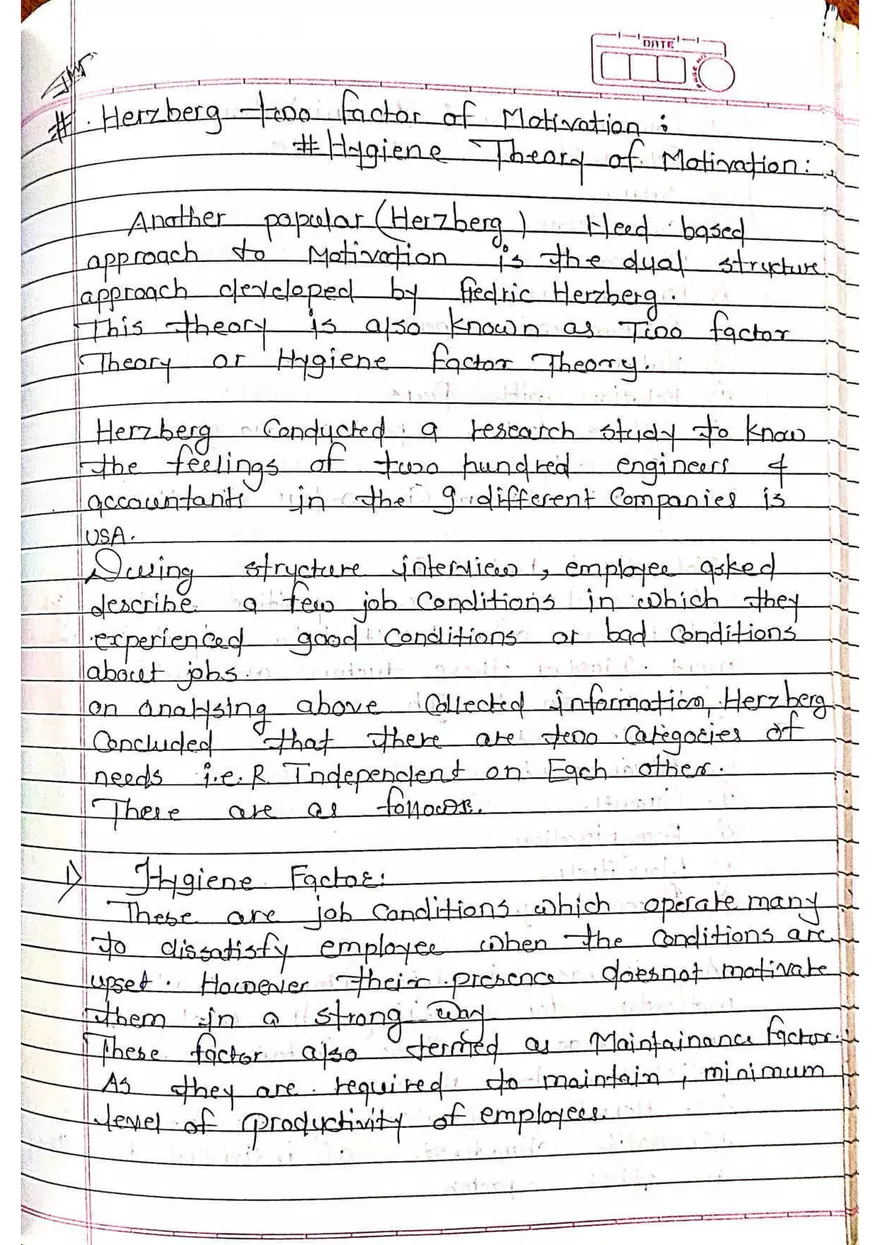 DATE
# Herzberg two factor of Motivation :
# Hygiene Theory of Motivation :
Another popular (Herzberg) Need based
approach to Motivation is the dual structure
approach developed by fredric Herzberg.
This theory is also known as Two factor
Theory or Hygiene factor Theory.
Herzberg Conducted a research study to know
the feelings of two hundred engineers &
accountants in the 9 different Companies is
USA.
During structure interview, employee asked
describe a few job Conditions in which they
experienced good Conditions or bad Conditions
about jobs.
on analysing above Collected information, Herzberg
Concluded that there are two Categories of
needs i.e. R Independent on Each other.
There are as follows.
1) Hygiene Factor:
These are job Conditions which operate many
to dissatisfy employee when the Conditions are
upset. However their presence doesnot motivate
them in a strong way
These factor also termed as Maintainance factor.
As they are required to maintain, minimum
level of productivity of employees.